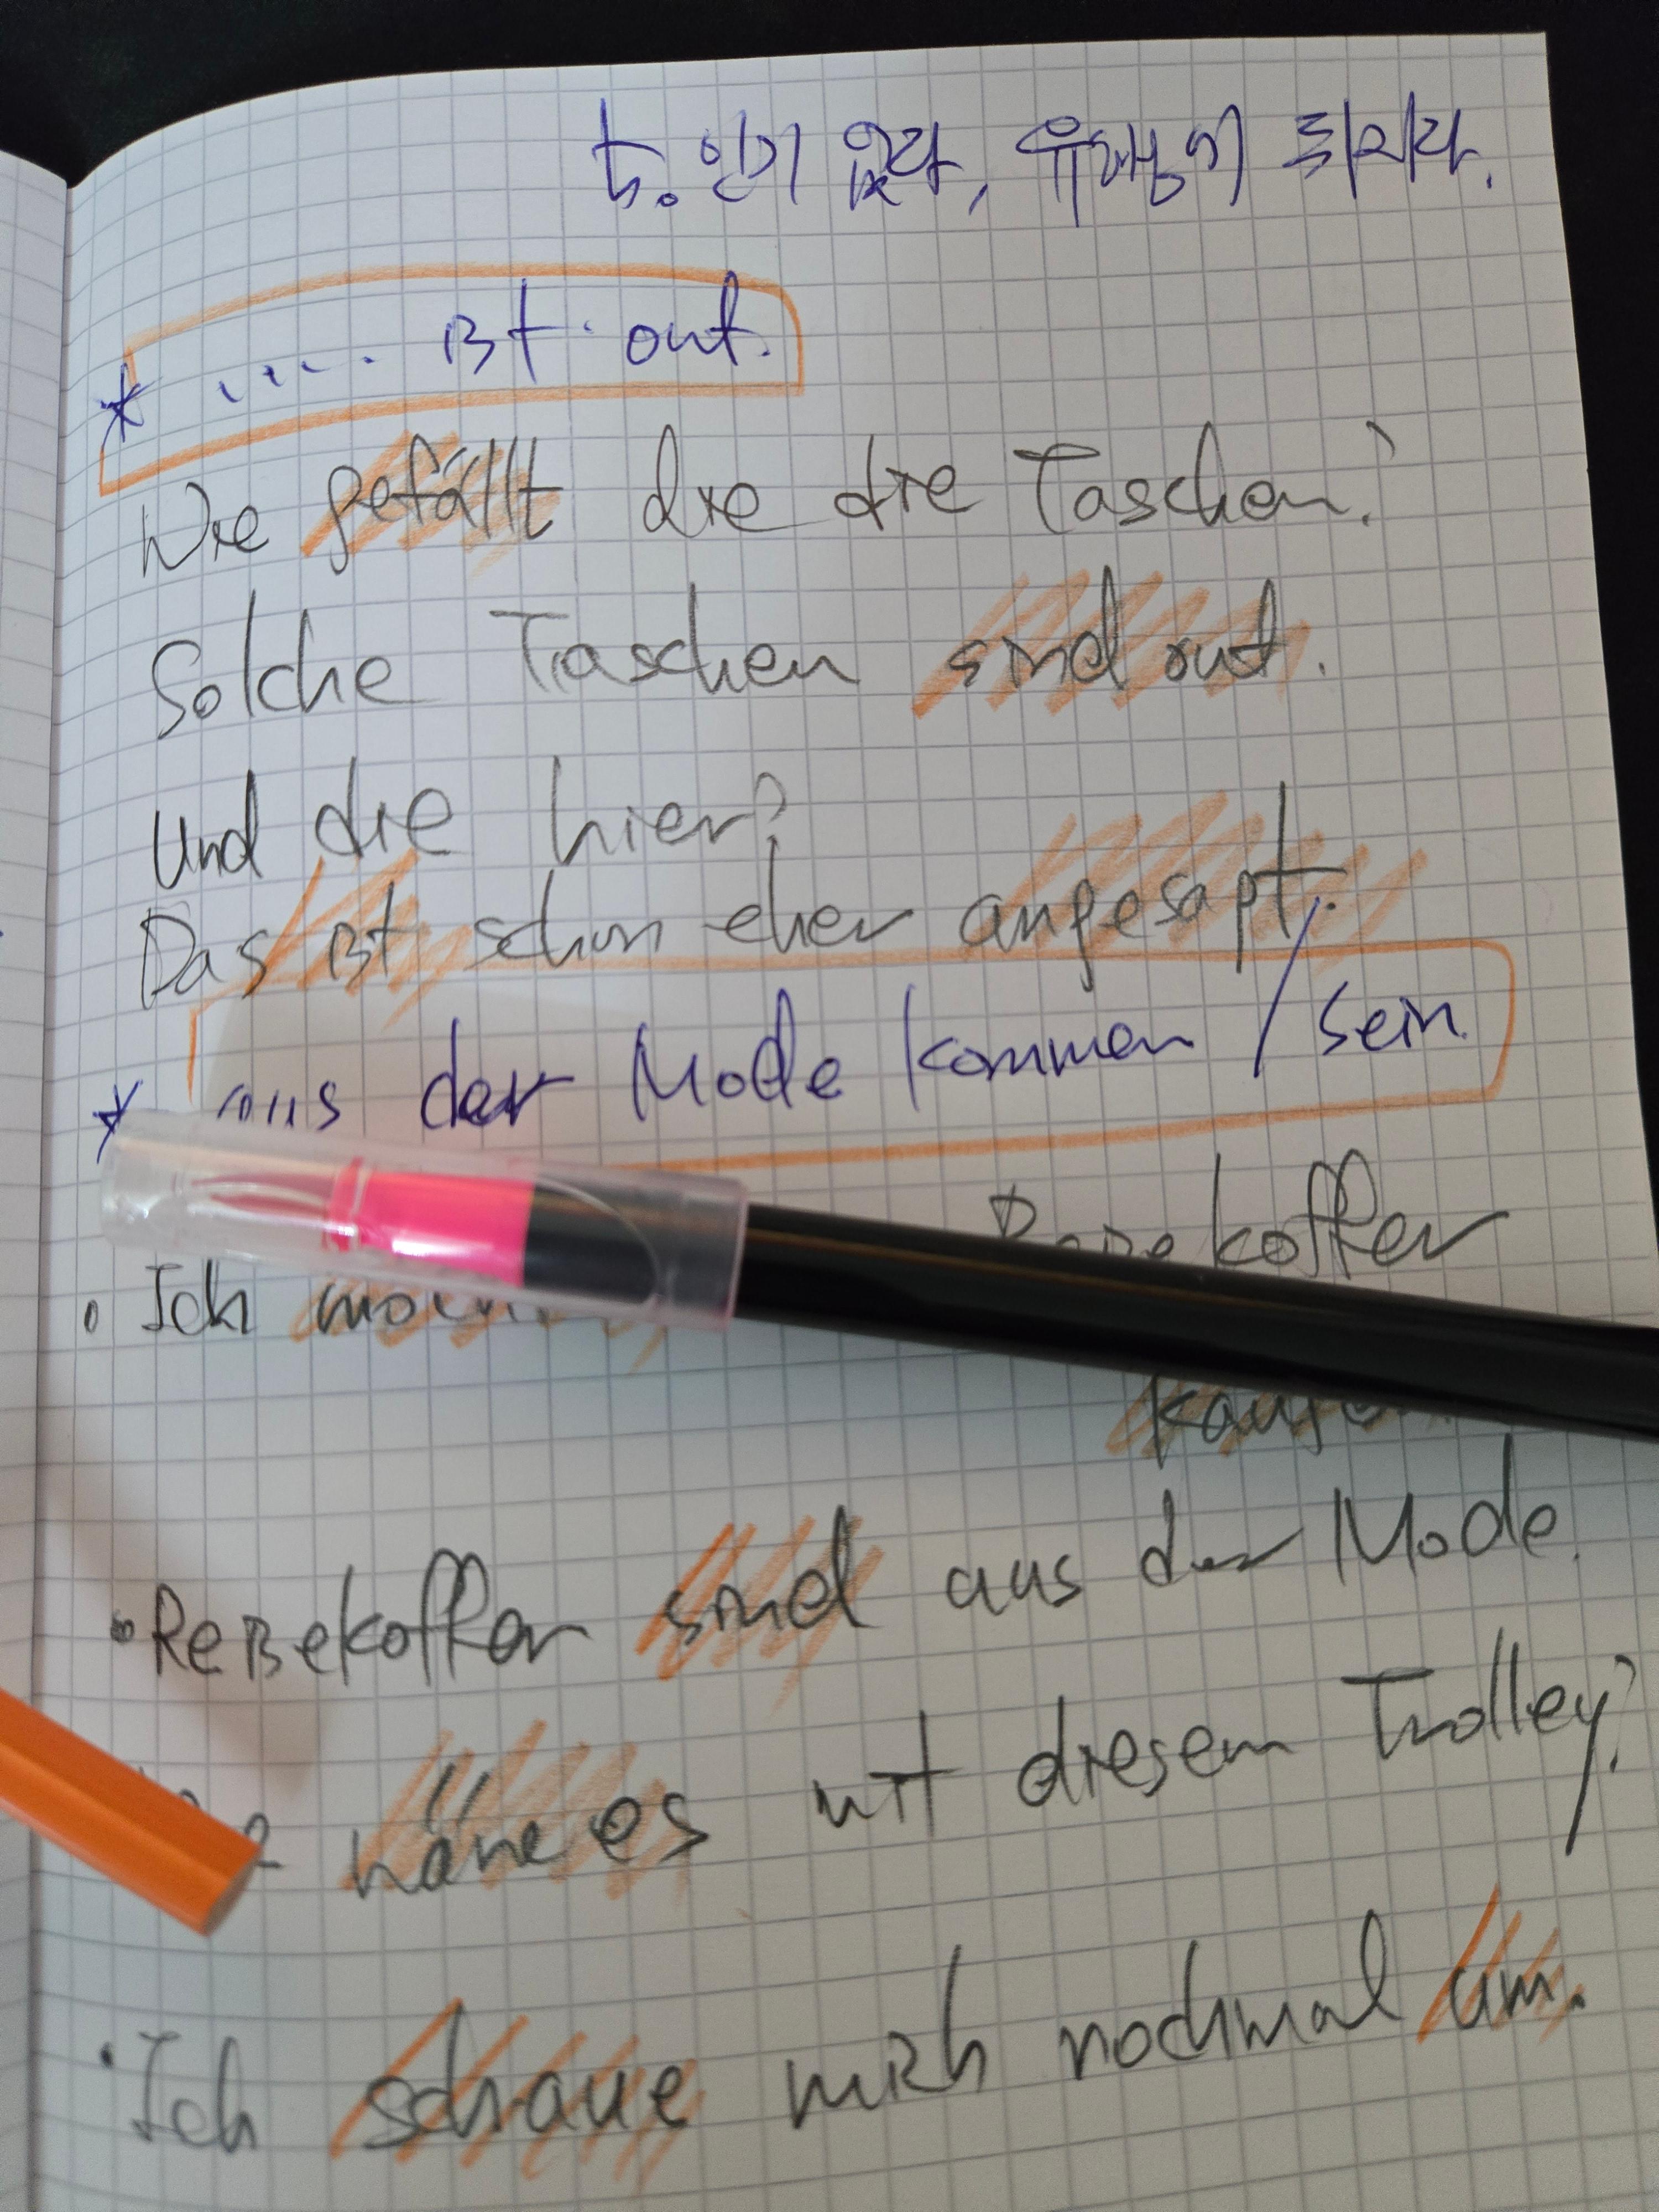 ㄸ. 인기 없다, 유행이 뒤지다.
* ..... ist out.
Wie gefällt die die Taschen?
Solche Taschen sind out.
Und die hier?
Das ist schon eher angesagt.
* aus der Mode kommen / sein
Reisekoffer
• Ich
kaufen
• Reisekoffer sind aus der Mode.
wäre es mit diesem Trolley?
• Ich schaue mich nochmal um.